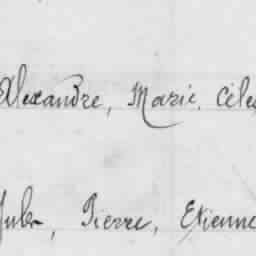 Alexandre, Marie, Céles
Jules, Pierre, Etienne